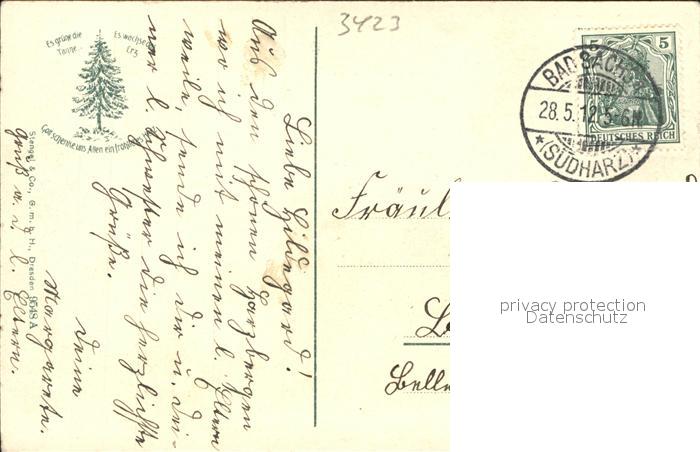 3423
Es grüne die
Tanne
Es wachse das
Erz
Gott schenke uns Allen ein frohes
Stengel & Co., G.m.b.H., Dresden 9548A
Liebe Hildegard!
Aus den schönen Harzbergen
wo ich mit meinen l. Eltern
weile, sende ich dir u. dei-
ner l. Schwester die herzlichste
Grüße.
Deine
Margarete.
Gruß v. d. l. Eltern.
5
5
DEUTSCHES REICH
BAD SACHSA
28.5.12. 5-6N
*(SÜDHARZ)*
Fräul
Belle
privacy protection
Datenschutz